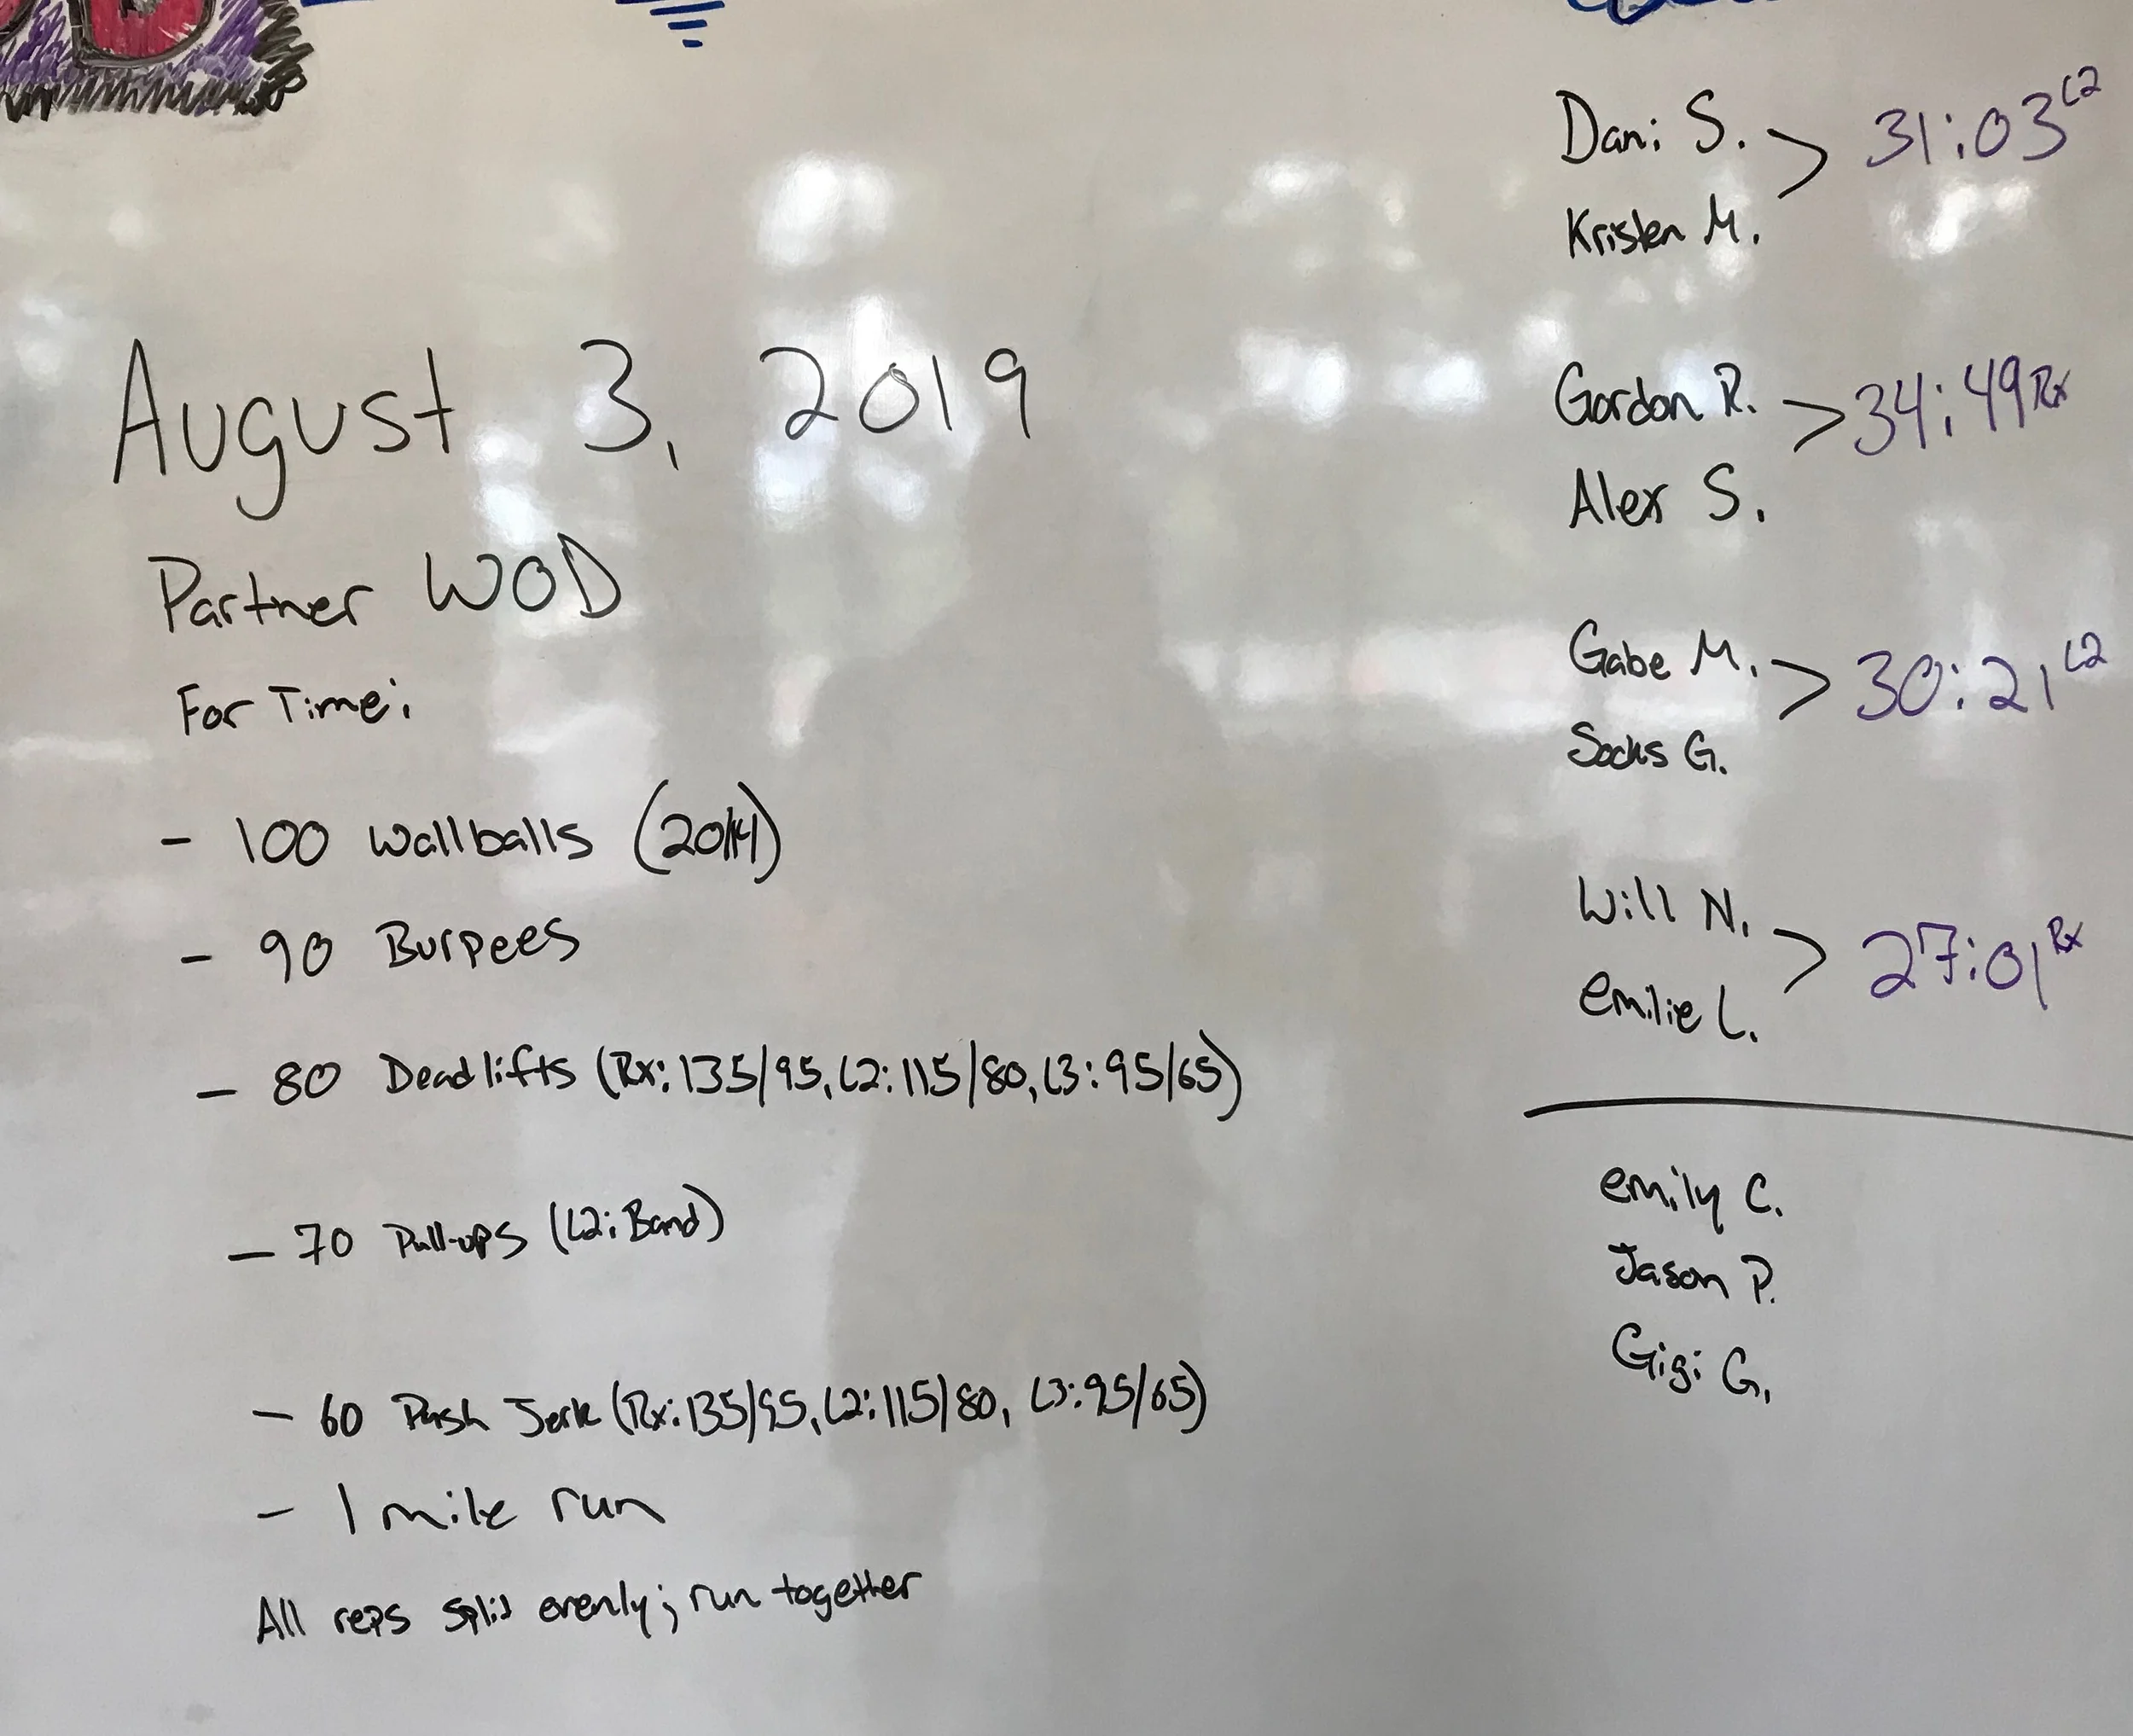 August 3, 2019
Partner WOD
For Time:
- 100 Wallballs (20/14)
- 90 Burpees
- 80 Deadlifts (Rx: 135/95, L2: 115/80, L3: 95/65)
- 70 Pull-ups (L2: Band)
- 60 Push Jerk (Rx: 135/95, L2: 115/80, L3: 95/65)
- 1 mile run
All reps split evenly; run together
Dani S. > 31:03 L2
Kristen M.
Gordon R. > 34:49 Rx
Alex S.
Gabe M. > 30:21 L2
Socks G.
Will N. > 27:01 Rx
Emilie L.
Emily C.
Jason P.
Gigi G.